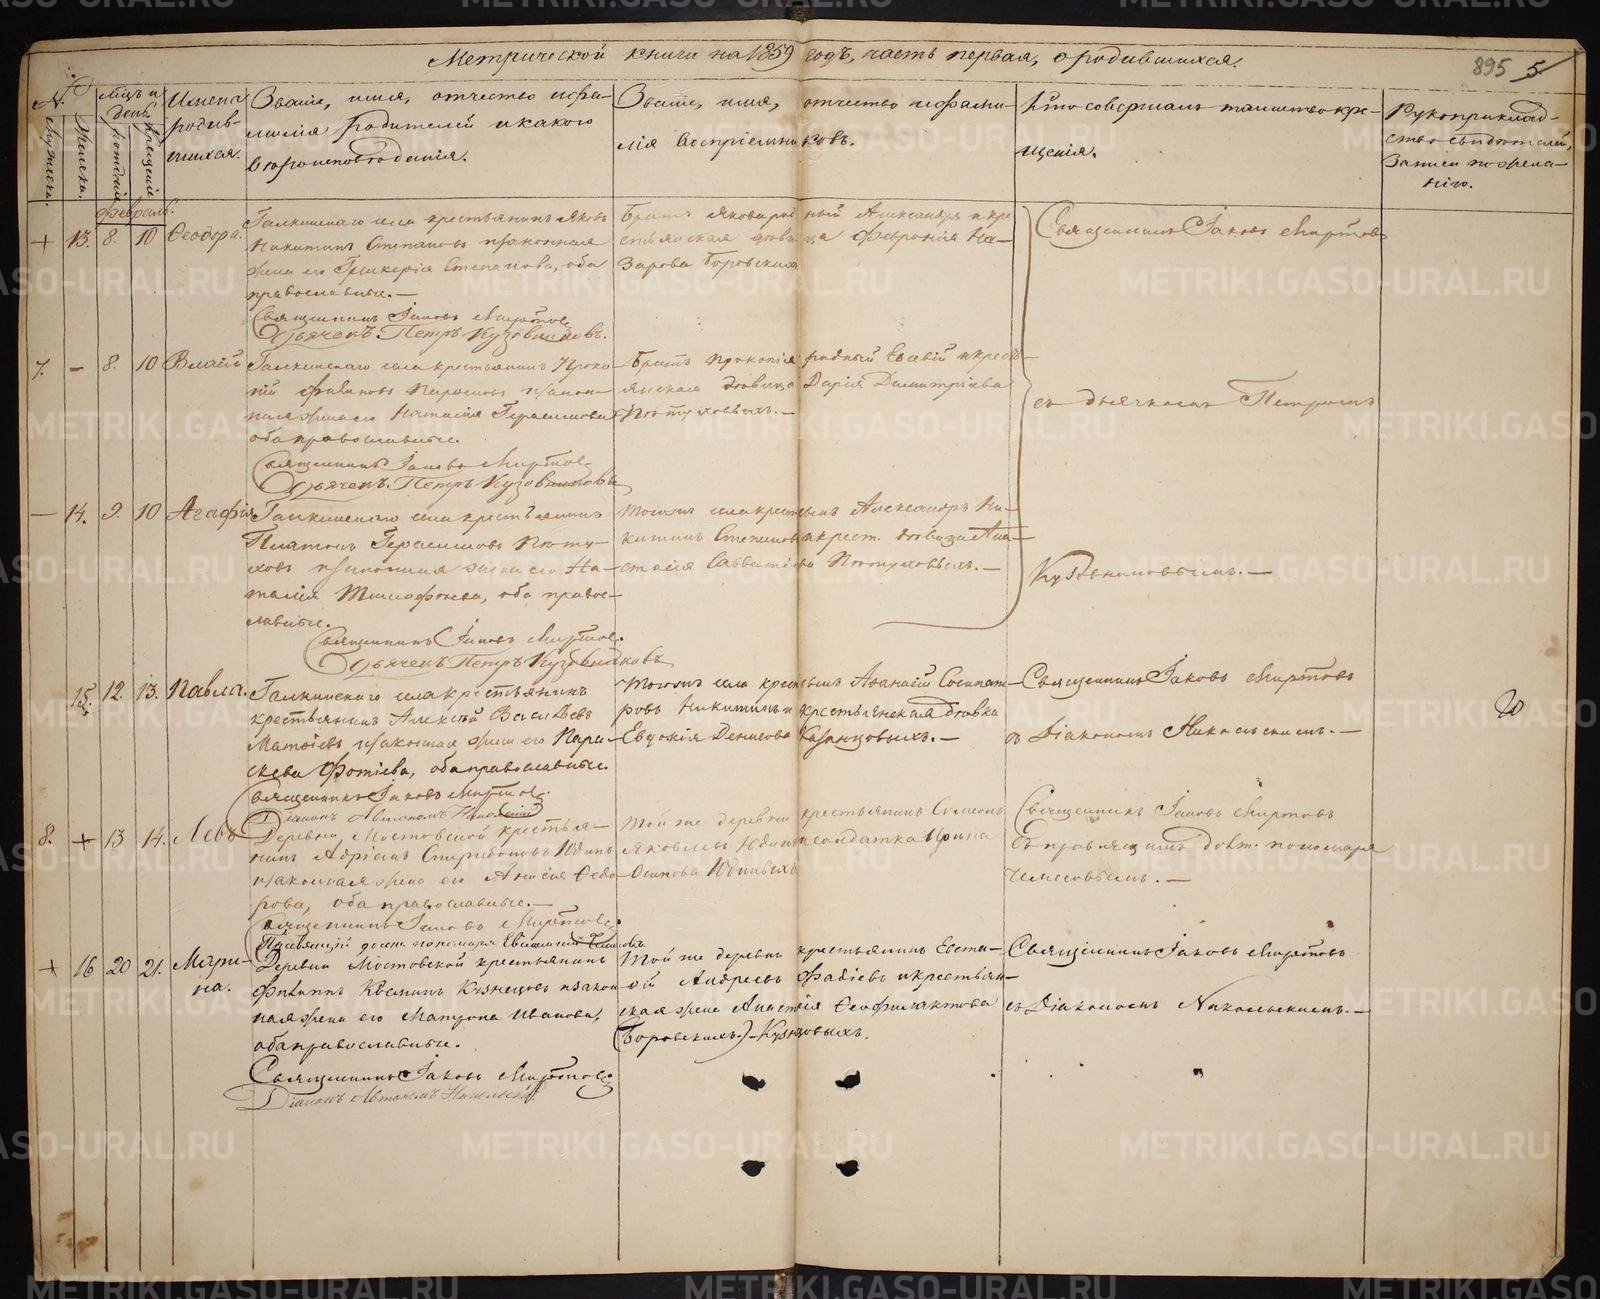 Метрической книги на 1859 годъ, часть первая, о родившихся.
895 5
№
Мужеска.
Женска.
Мѣсяцъ и
день.
Рожденія
Крещенія
Имена
родив-
шихся.
Званіе, имя, отчество и фами-
лія родителей и какого
вѣроисповѣданія.
Званіе, имя, отчество и фами-
лія воспріемниковъ.
Кто совершалъ таинство кре-
щенія.
Рукоприклад-
ство свидѣтелей
записи по жела-
нію.
Февраль.
+ 13. 8. 10 Ѳеодора.
Галкинскаго села крестьянинъ Яковъ
Никитинъ Степановъ и законная
жена его Гликерія Степанова, оба
православные.—
Священникъ Іаковъ Миртовъ
Дьячекъ Петръ Кузовниковъ.
Братъ Якова родный Александръ и кре
стьянская дѣвица Февронія На-
зарова Боровскихъ
Священникъ Іаковъ Миртовъ
7. — 8. 10 Власій
Галкинскаго села крестьянинъ Проко
пій
законн-
ная жена его Наталія Герасимова
оба православные.
Священникъ Іаковъ Миртовъ
Дьячекъ Петръ Кузовниковъ
Братъ Прокопія родный Евсевій и кресть-
янская дѣвица Дарія Димитріева
Пѣтуховыхъ.—
съ дьячкомъ Петромъ
— 14. 9. 10 Агафія
Галкинскаго села крестьянинъ
Платонъ Герасимовъ Пѣту-
ховъ и законная жена его На-
талія Тимофѣева, оба право-
славные.
Священникъ Іаковъ Миртовъ.
Дьячекъ Петръ Кузовниковъ
Тогожъ села крестьянъ Александръ Ни-
китинъ Степановъ и крест. дѣвица Ана-
стасія Савватіева Пѣтуховыхъ.—
Кузовниковымъ.—
15. 12. 13. Павла.
Галкинскаго села крестьянинъ
крестьянинъ Алексѣй Васильевъ
Матвѣевъ и законная жена его Пара-
скева Фотіева, оба православные.
Священникъ Іаковъ Миртовъ.
Діаконъ Автономъ Никольскій
Тогожъ села крестьянъ Аѳанасій Сосипат-
ровъ Никитинъ и крестьянская дѣвка
Евдокія Денисова Казанцовыхъ.—
Священникъ Іаковъ Миртовъ
съ Діакономъ Никольскимъ.—
20
8. + 13 14. Левъ
Деревни Мостовской крестья-
нинъ Адріанъ Спиридоновъ Юдинъ
и законная жена его Анисія Ѳедо-
рова, оба православные.—
Священникъ Іаковъ Миртовъ.
Правящій долж. пономаря
Той же деревни крестьянинъ Симеонъ
Яковлевъ Юдинъ и солдатка Ирина
Осипова Юдиныхъ
Священникъ Іаковъ Миртовъ
съ правящимъ долж. пономаря
Чемесовымъ.—
+ 16 20 21. Мари-
на.
Деревни Мостовской крестьянинъ
Филиппъ Козминъ Кузнецовъ и закон
ная жена его Матрона Иванова,
оба православные.
Священникъ Іаковъ Миртовъ
Діаконъ Автономъ Никольскій
Той же деревни крестьянинъ Евста-
ѳій Андреевъ Фадѣевъ и крестьян-
ская жена Анастасія Ѳеофилактова
(Боровскихъ.)—Кузнецовыхъ.
Священникъ Іаковъ Миртовъ
съ Діакономъ Никольскимъ.—
METRIKI.GASO-URAL.RU